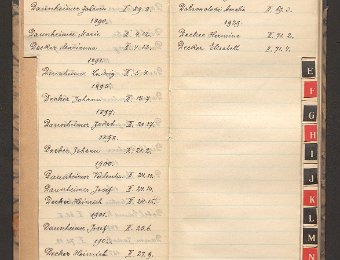 Daunheimer Johann X. 29.3.
1890.
Daunheimer Marie X. 4.12.
Decker Marianna X. 4.12.
1891.
Dernheimer Ludwig X. 5.4.
1895.
Decker Johann X. 12.7.
1897.
Daunheimer Jakob X. 20.17.
1898.
Decker Johann X. 21.2.
1900.
Daunheimer Valentin X. 24.12.
Daunheimer Josef X. 24.14.
Decker Heinrich X. 24.15.
1901.
Daunheimer Josef X. 25.6.
Decker Heinrich X. 27.9.
Amalia X. 69.3.
1925.
Decker Hermine X. 71.2.
Decker Elisabeth X. 71.4.
E
F
G
H
I
J
K
L
M
N